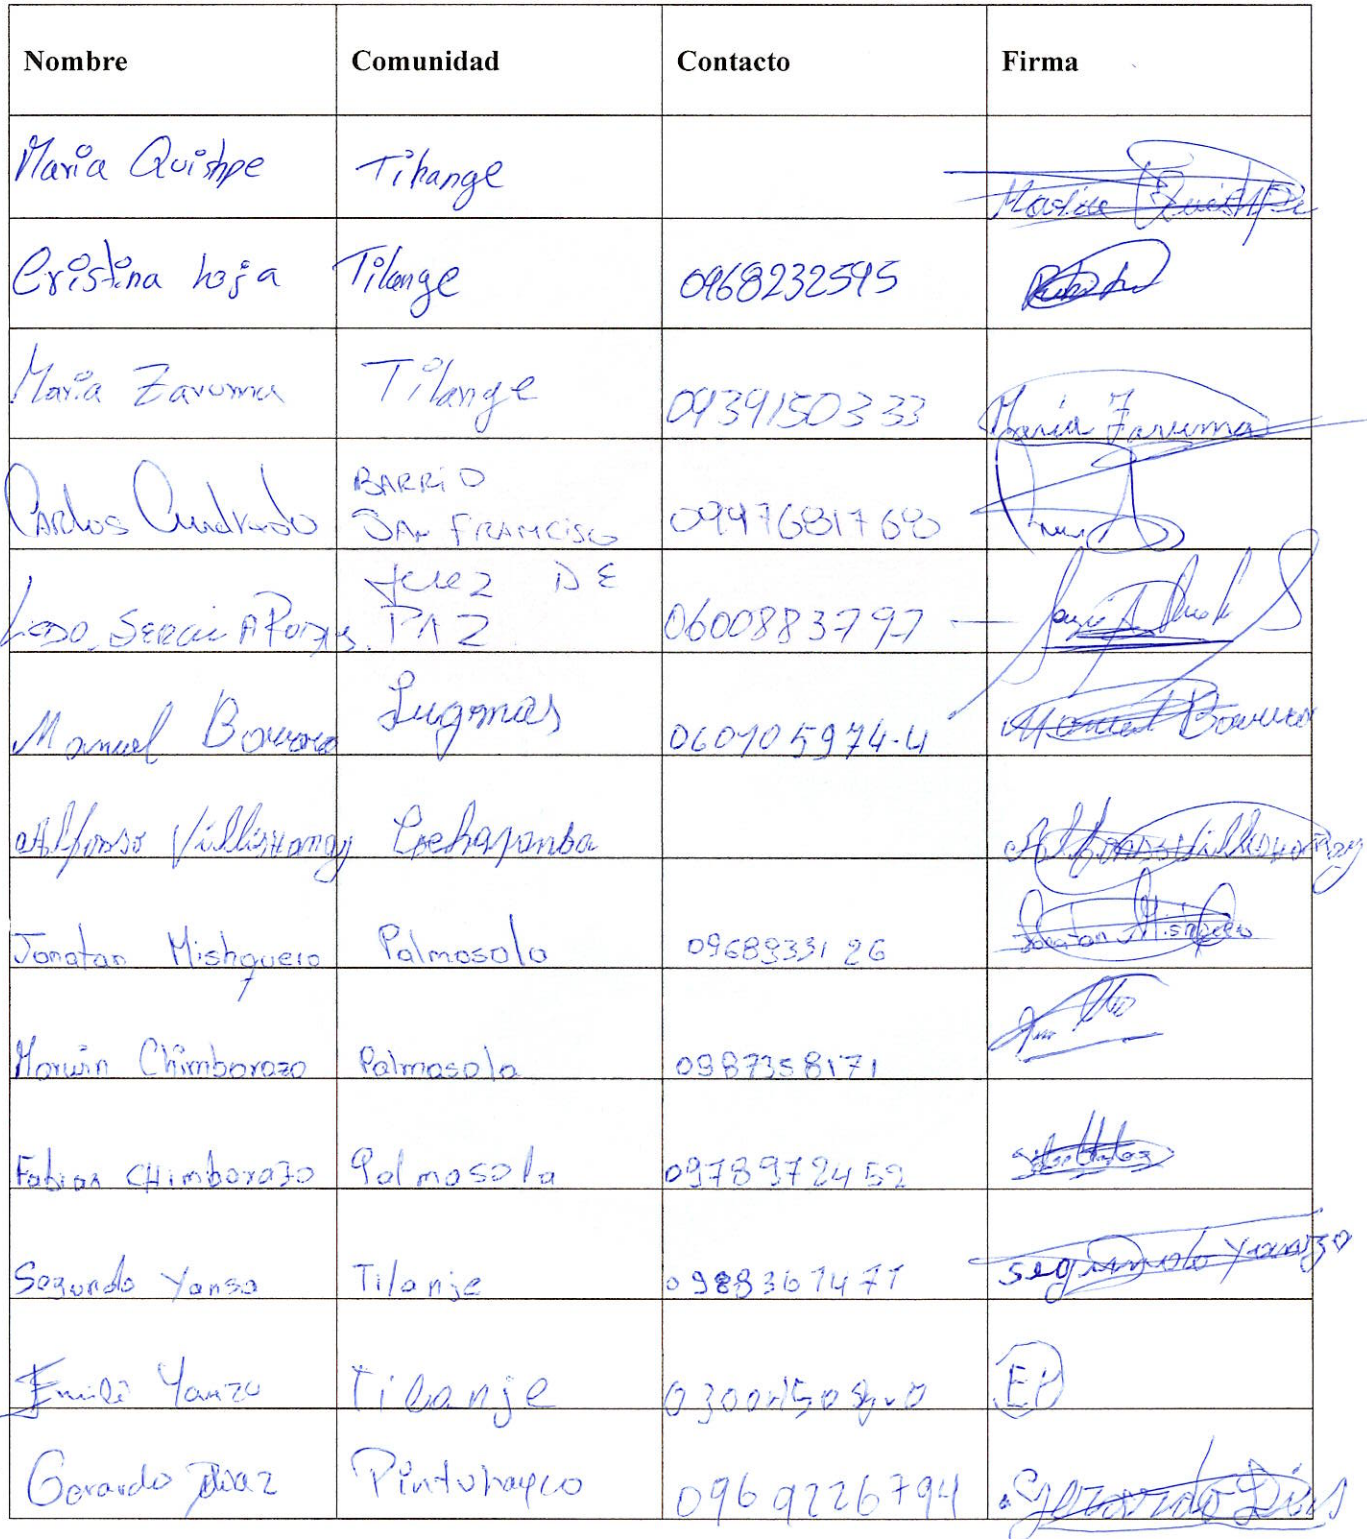 Nombre Comunidad Contacto Firma
Maria Quishpe Tihange Maria Quishpe
Cristina loja Tilange 0968232595
Maria Zaruma Tilange 0939150333 Maria Zaruma
Carlos Cuadrado BARRIO
SAN FRANCISCO 0997681768
JUEZ DE
Lcdo. SERGIO PAZ 0600883797
Manuel Lugmas 060105974-4 Manuel
Alfonso Villishañay Cochapamba Alfonso Villishañay
Jonatan Mishquero Palmasola 0968933126 Jonatan Mishquero
Marwin Chimborazo Palmasola 0987358171
Fabian CHimborazo Palmasola 0978972452
Segundo Yansa Tilanje 0988361471 segundo
Emili Yanzu Tilanje EP
Gerardo Diaz Pintuhayco 0969226794 Gerardo Días